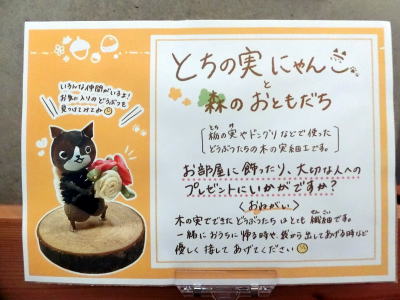 とちの実にゃんこ
と
森のおともだち
いろんな仲間がいるよ！
お気に入りのどうぶつを
見つけてみてね
〔栃の実やドングリなどで使った
どうぶつたちの木の実細工です。〕
お部屋に飾ったり、大切な人への
プレゼントにいかがですか？
〈おねがい〉
木の実でできたどうぶつたちはとても繊細です。
一緒におうちに帰る時や、袋から出してあげる時など
優しく接してあげてください